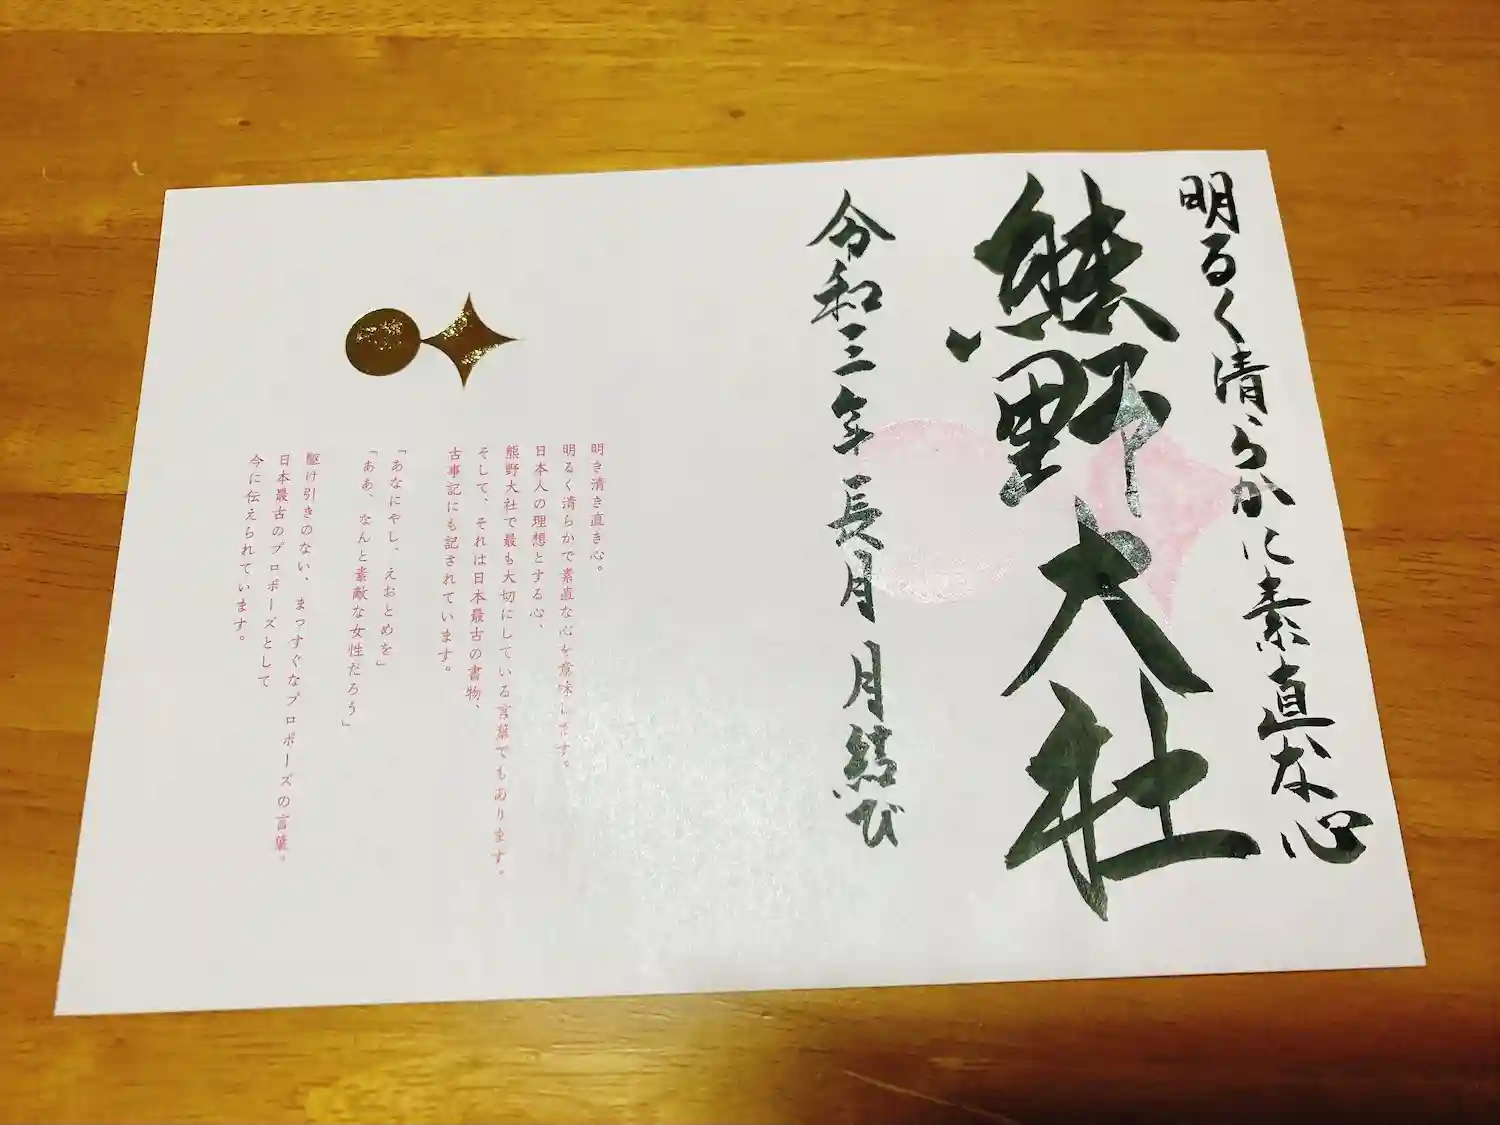 明るく清らかに素直な心
熊野大社
令和三年長月 月結び
明き清き直き心。
明るく清らかで素直な心を意味します。
日本人の理想とする心、
熊野大社で最も大切にしている言葉でもあります。
そして、それは日本最古の書物、
古事記にも記されています。
「あなにやし、えおとめを」
「ああ、なんと素敵な女性だろう」
駆け引きのない、まっすぐなプロポーズの言葉。
日本最古のプロポーズとして
今に伝えられています。